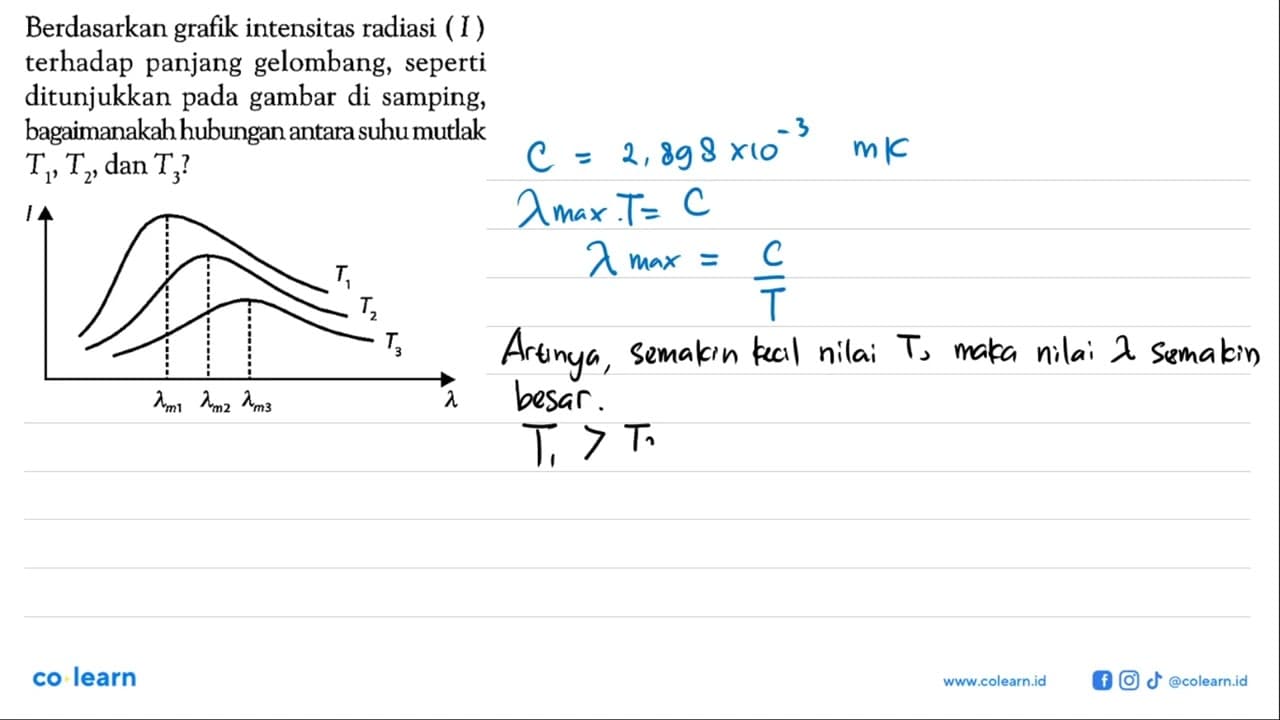 Berdasarkan grafik intensitas radiasi (I)
terhadap panjang gelombang, seperti
ditunjukkan pada gambar di samping,
bagaimanakah hubungan antara suhu mutlak
T₁, T₂, dan T₃?
I
T₁
T₂
T₃
λm1 λm2 λm3 λ
C = 2,898 x10⁻³ mK
λ max . T = C
λ max = C/T
Artinya, semakin kecil nilai T, maka nilai λ semakin
besar.
T₁ > T₂
co learn
www.colearn.id @colearn.id